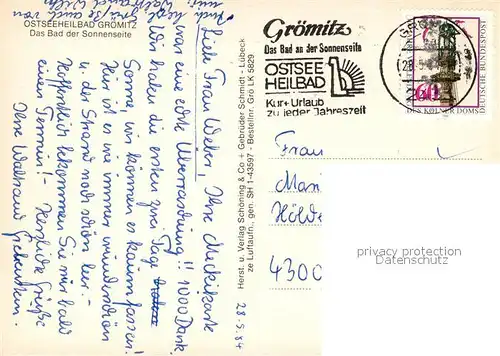 OSTSEEHEILBAD GRÖMITZ
Das Bad der Sonnenseite
Liebe Frau Wehn, Ihre Meckikarte
war eine echte Überraschung!! 1000 Dank.
Wir haben die ersten zwei Tage
Sonne, wir können es kaum fassen!
Hier ist es wie immer wunderschön
u. der Strand noch schön leer. -
Hoffentlich bekommen Sie mir bald
einen Termin! - Herzliche Grüße
Ihre Waltraud
28.5.84
Herst. u. Verlag Schöning & Co + Gebrüder Schmidt · Lübeck
ze Luftaufn., gen. SH 1-43597 - Bestellnr. Grö LK 5829
Grömitz
Das Bad an der Sonnenseite
OSTSEE
HEILBAD
Kur + Urlaub
zu jeder Jahreszeit
60
DES KÖLNER DOMS
DEUTSCHE BUNDESPOST
Frau
4300
privacy protection
VINTAGE-POSTCARD.COM